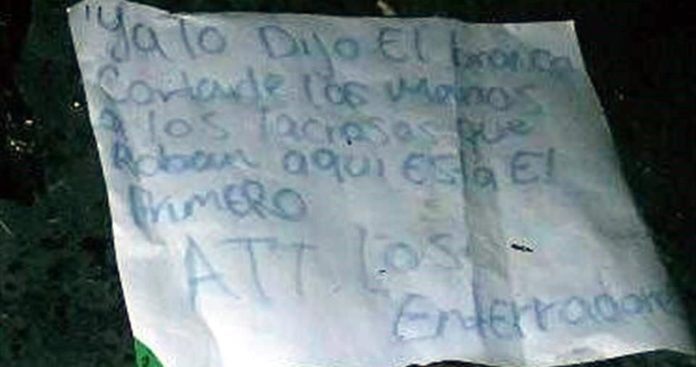 "Ya lo Dijo El bronco
Cortarle las Manos
a los lacrosas que
Roban aqui Esta El
PriMERO
ATT. Los
Enterradores